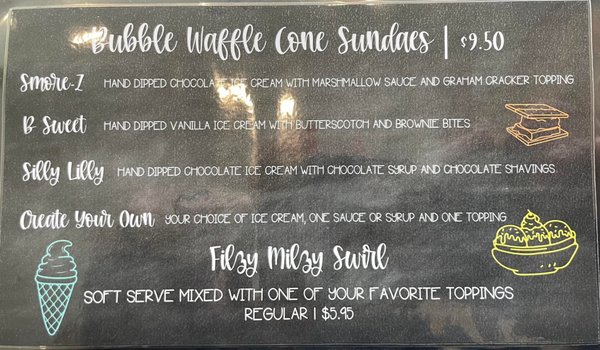 Bubble Waffle Cone Sundaes | $9.50
Smore-Z HAND DIPPED CHOCOLATE ICE CREAM WITH MARSHMALLOW SAUCE AND GRAHAM CRACKER TOPPING
B Sweet HAND DIPPED VANILLA ICE CREAM WITH BUTTERSCOTCH AND BROWNIE BITES
Silly Lilly HAND DIPPED CHOCOLATE ICE CREAM WITH CHOCOLATE SYRUP AND CHOCOLATE SHAVINGS
Create Your Own YOUR CHOICE OF ICE CREAM, ONE SAUCE OR SYRUP AND ONE TOPPING
Filzy Milzy Swirl
SOFT SERVE MIXED WITH ONE OF YOUR FAVORITE TOPPINGS
REGULAR | $5.95